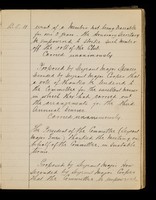 event of a Member not being available
for over a year, the Honorary Secretary
be empowered to strike such member
off the roll of the Club
Carried unanimously
Proposed by Sergeant Major
Seconded by Sergeant Major that
a vote of thanks be tendered to
the Committee for the excellent manner
in which they had carried out
the arrangements for the third
annual dinner
Carried unanimously
The President of the Committee (Sergeant
Major) thanked the meeting on
behalf of the Committee, in suitable
terms
Proposed by Sergeant Major
Seconded by Sergeant Major
that the Committee be empowered